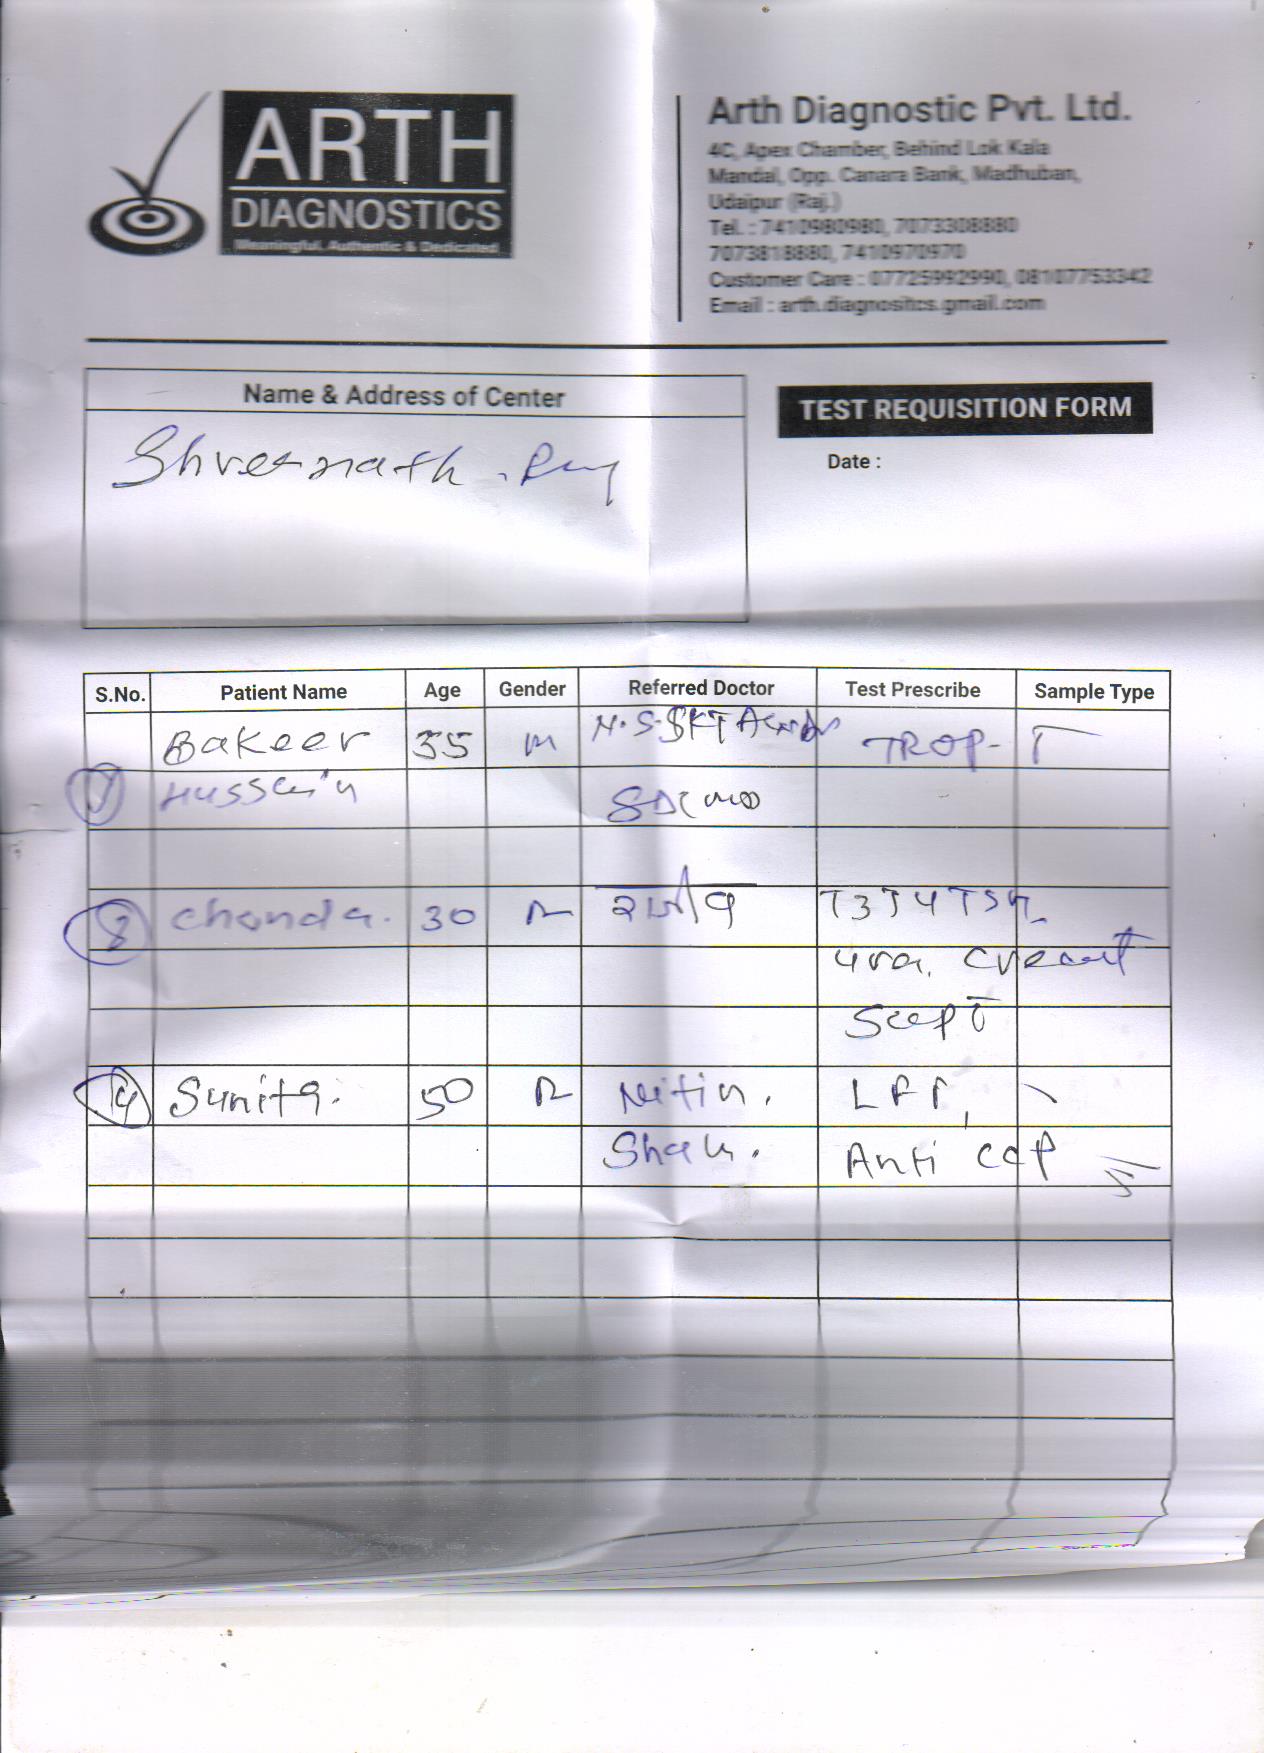 ARTH
DIAGNOSTICS
Meaningful, Authentic & Dedicated
Arth Diagnostic Pvt. Ltd.
4C, Apex Chamber, Behind Lok Kala
Mandal, Opp. Canara Bank, Madhuban,
Udaipur (Raj.)
Tel. : 7410980980, 7073308880
7073818880, 7410970970
Customer Care : 07725992990, 08107753342
Email : arth.diagnositcs.gmail.com
Name & Address of Center
TEST REQUISITION FORM
Shreenath.
Date :
S.No. Patient Name Age Gender Referred Doctor Test Prescribe Sample Type
Bakeer 35 m TROP-T
Hussain
8 Chanda. 30 T3T4TSH
Sunita. 50 Nitin. LFT,
Shah. Anti CCP